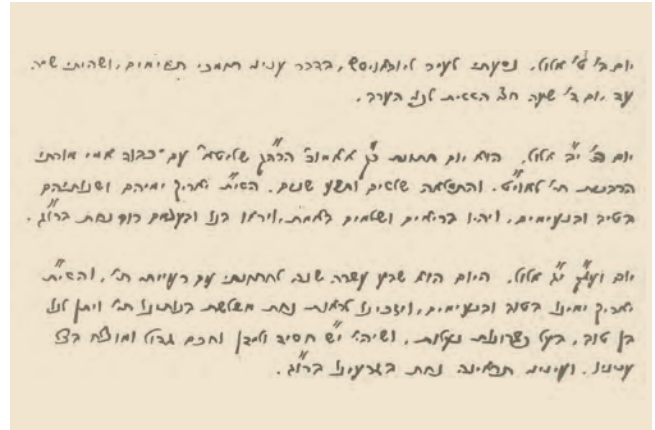 יום ב' ט' אלול. נסעתי לעיר ליובאוויטש, בדבר ענינו תומכי תמימים, ושהיתי שם
עד יום ד' שעה חצי השעית לפנו' הערב.
יום ה' י"ב אלול. הוא יום חתונת כ"ק אאמו"ר הרה"ק שליט"א עם כבוד אמי מורתי
הרבנית תי' לאוי"ט. והתמלאה שלשים ותשע שנים. השי"ת יאריך ימיהם ושנותיהם
בטוב ובנעימים, ויהיו בריאים ושלמים באמת, ויראו בנו ובעצמם רוב נחת ברו"ג.
יום ועש"ק י"ג אלול. היום הוא שבע עשרה שנה לחתונתי עם רעייתי תי', והשי"ת
יאריך ימינו בטוב ובנעימים, ויזכינו לראות נחת משלשת בנותינו תי' ויתן לנו
בן טוב, בעל כשרונות נעלות, ושיהי' י"ש חסיד ולמדן וחכם גדול ומוצלח בכל
עניניו. ועינינו תראינה נחת בזרעינו ברו"ג.